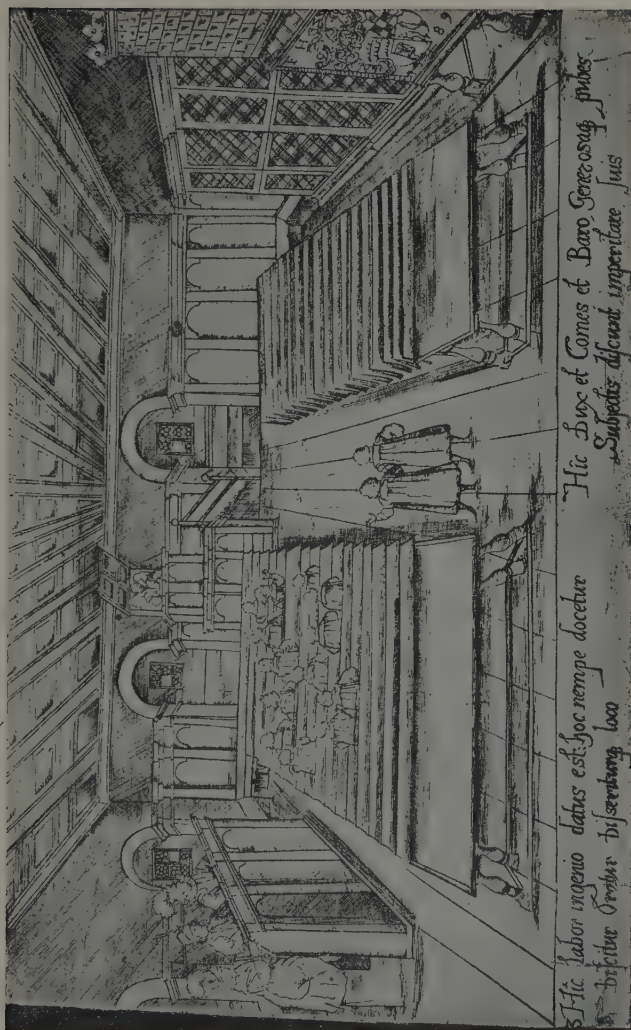 Hic labor ingenio datus est: hoc nempe docetur
discitur loco
Hic Dux et Comes et Baro, Generosaq pubes
Subjectis discunt imperitare suis
89